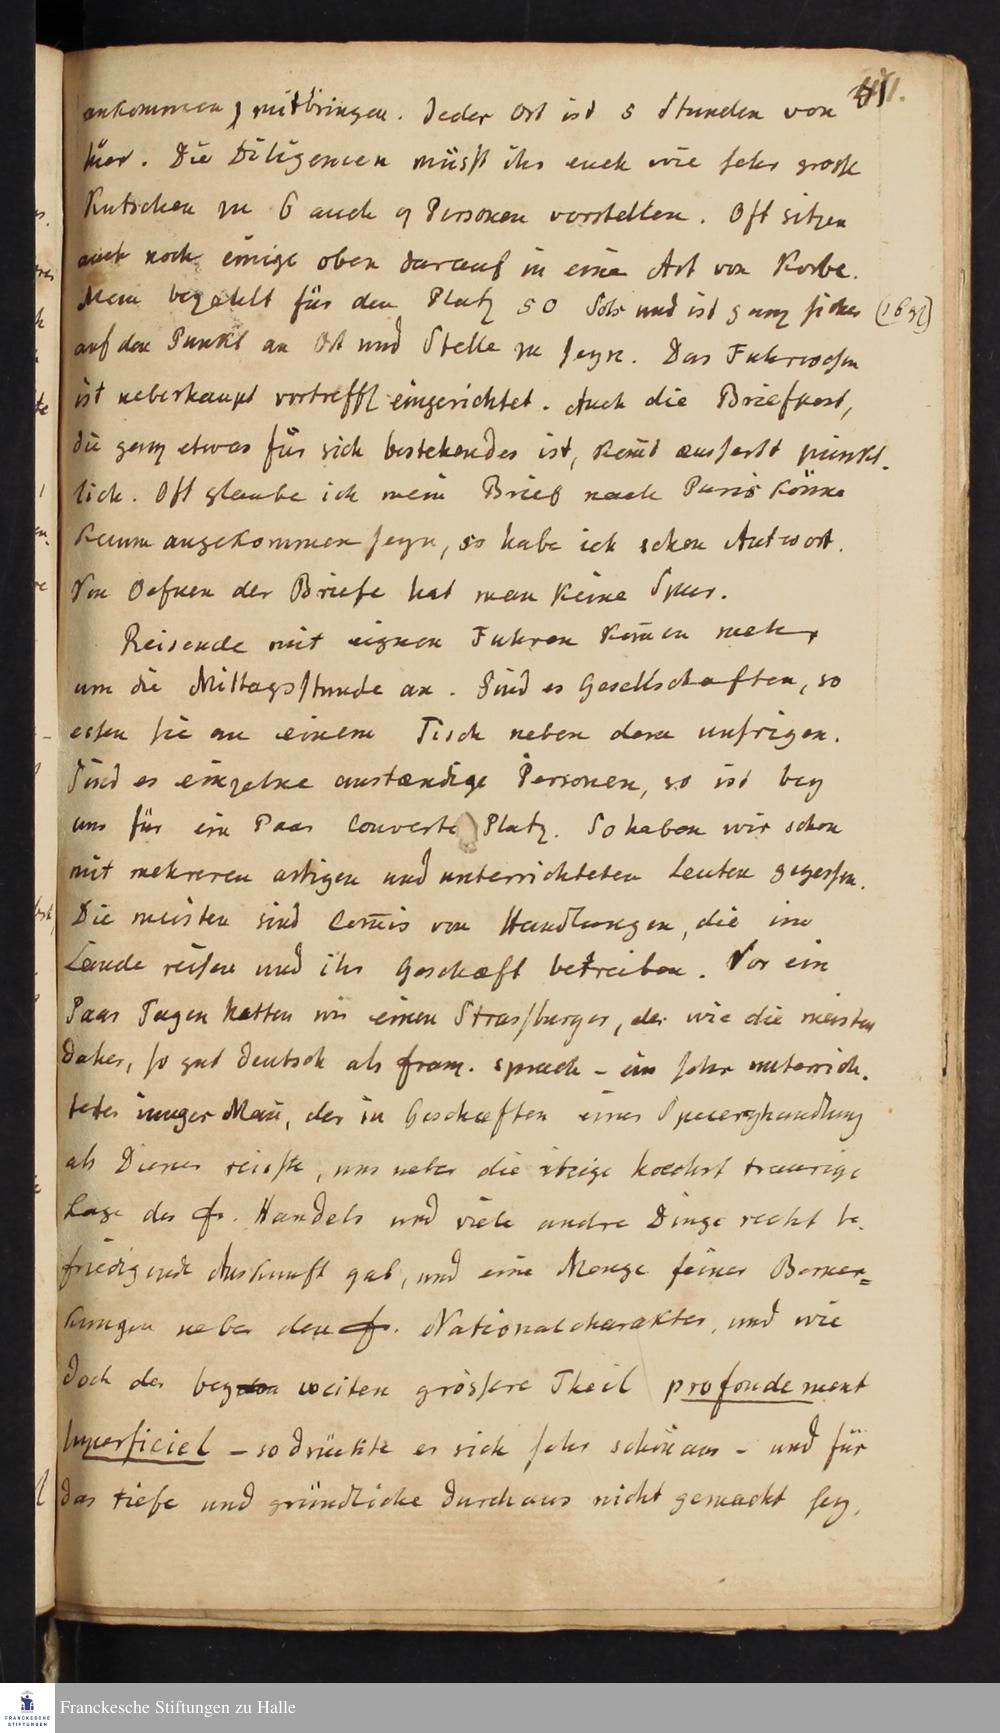 51
ankommen, mitbringen. Jeder Ort ist 5 Stunden von
hier. Die Diligencen müsst ihr euch wie sehr grosse
Kutschen zu 6 auch 9 Personen vorstellen. Oft sitzen
auch noch einige oben darauf in eine Art von Korbe.
Man bezahlt für den Platz 50 Sols und ist ganz sicher
auf den Punkt an Ort und Stelle zu seyn. Das Fuhrwesen
ist ueberhaupt vortreffl eingerichtet. Auch die Briefpost,
die ganz etwas für sich bestehendes ist, kom̄t aeusserst pünkt-
lich. Oft glaube ich mein Brief nach Paris könne
kaum angekommen seyn, so habe ich schon Antwort.
Von Oefnen der Briefe hat man keine Spur.
Reisende mit eignen Fuhren kom̄en mehr
um die Mittagsstunde an. Sind es Gesellschaften, so
essen sie an einem Tisch neben dem unsrigen.
Sind es einzelne anstændige Personen, so ist bey
uns für ein Paar Couverte Platz. So haben wir schon
mit mehreren artigen und unterrichteten Leuten gegessen.
Die meisten sind Com̄is von Handlungen, die im
Lande reisen und ihr Geschæft betreiben. Vor ein
Paar Tagen hatten wir einen Strassburger, der wie die meisten
daher, so gut deutsch als franz. sprach – ein sehr unterrich-
teter iunger Man̄, der in Geschæften einer Specereyhandlung
als Diener reisste, uns ueber die itzige hoechst traurige
Lage des fr. Handels und viele andre Dinge recht be-
friedigende Auskunft gab, und eine Menge feiner Bemer-
kungen ueber den fr. Nationalcharakter, und wie
doch der bey weiten grössere Theil profondement
superficiel – so drückte er sich sehr schön aus – und für
das tiefe und gründliche durchaus nicht gemacht sey,
FRANCKESCHE
STIFTUNGEN
Franckesche Stiftungen zu Halle